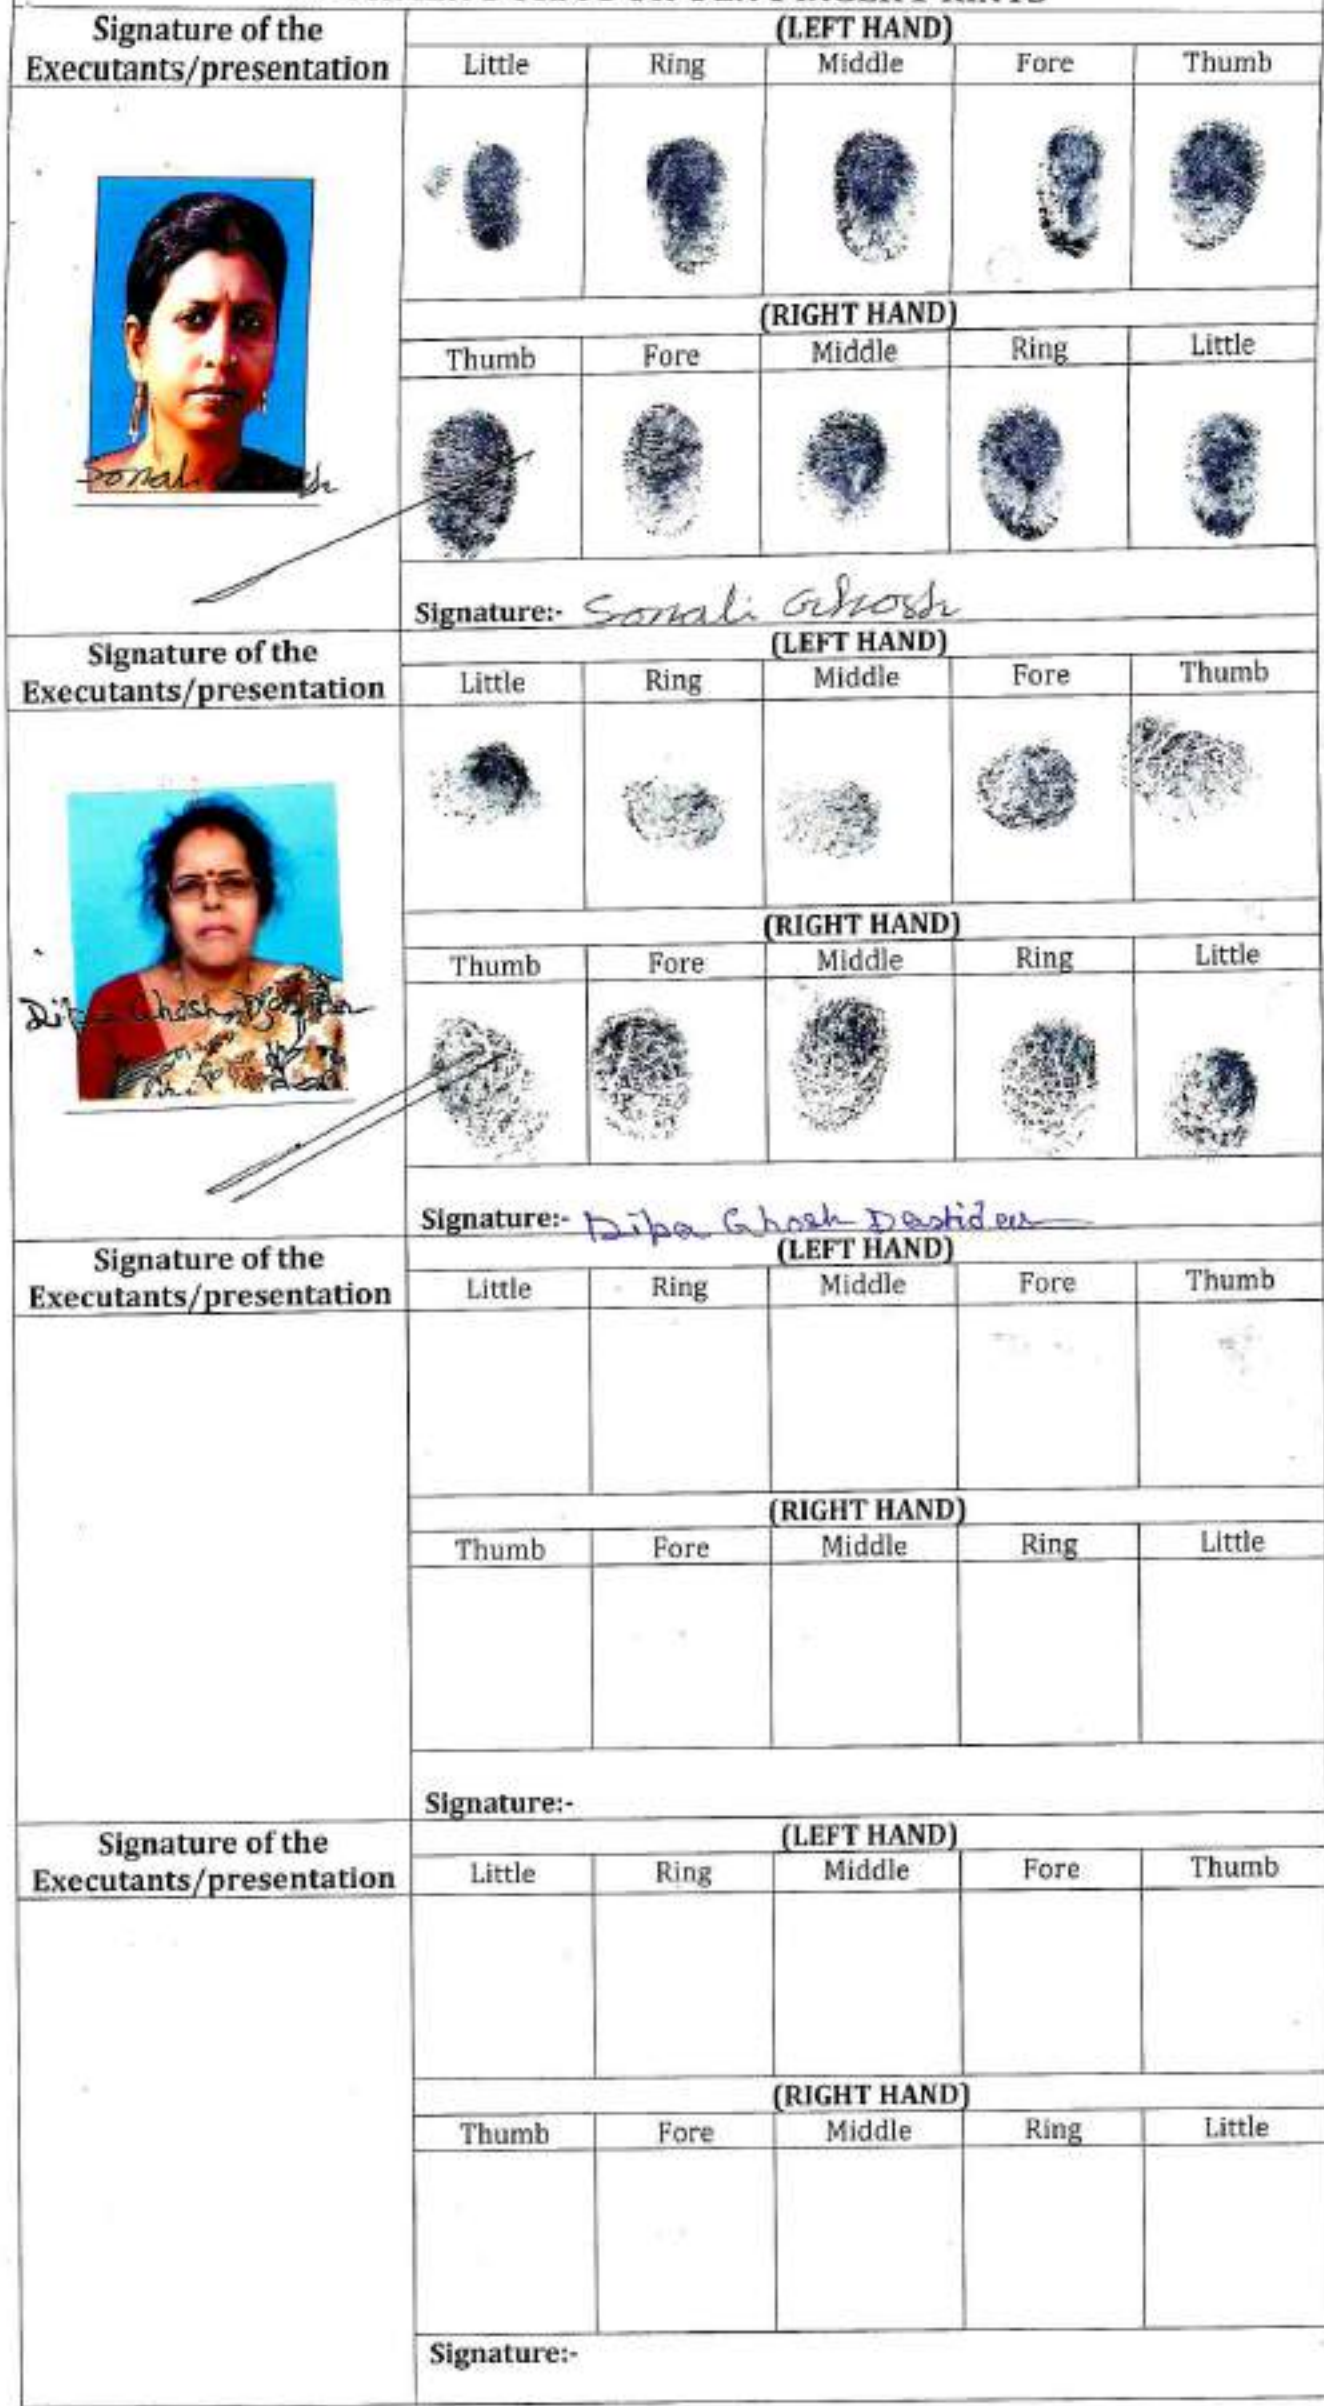 Signature of the
Executants/presentation
(LEFT HAND)
Little Ring Middle Fore Thumb
(RIGHT HAND)
Thumb Fore Middle Ring Little
Sonali
Signature:- Sonali Ghosh
Signature of the
Executants/presentation
(LEFT HAND)
Little Ring Middle Fore Thumb
(RIGHT HAND)
Thumb Fore Middle Ring Little
Ghosh
Signature:- Dipa Ghosh Dastidar
Signature of the
Executants/presentation
(LEFT HAND)
Little Ring Middle Fore Thumb
(RIGHT HAND)
Thumb Fore Middle Ring Little
Signature:-
Signature of the
Executants/presentation
(LEFT HAND)
Little Ring Middle Fore Thumb
(RIGHT HAND)
Thumb Fore Middle Ring Little
Signature:-